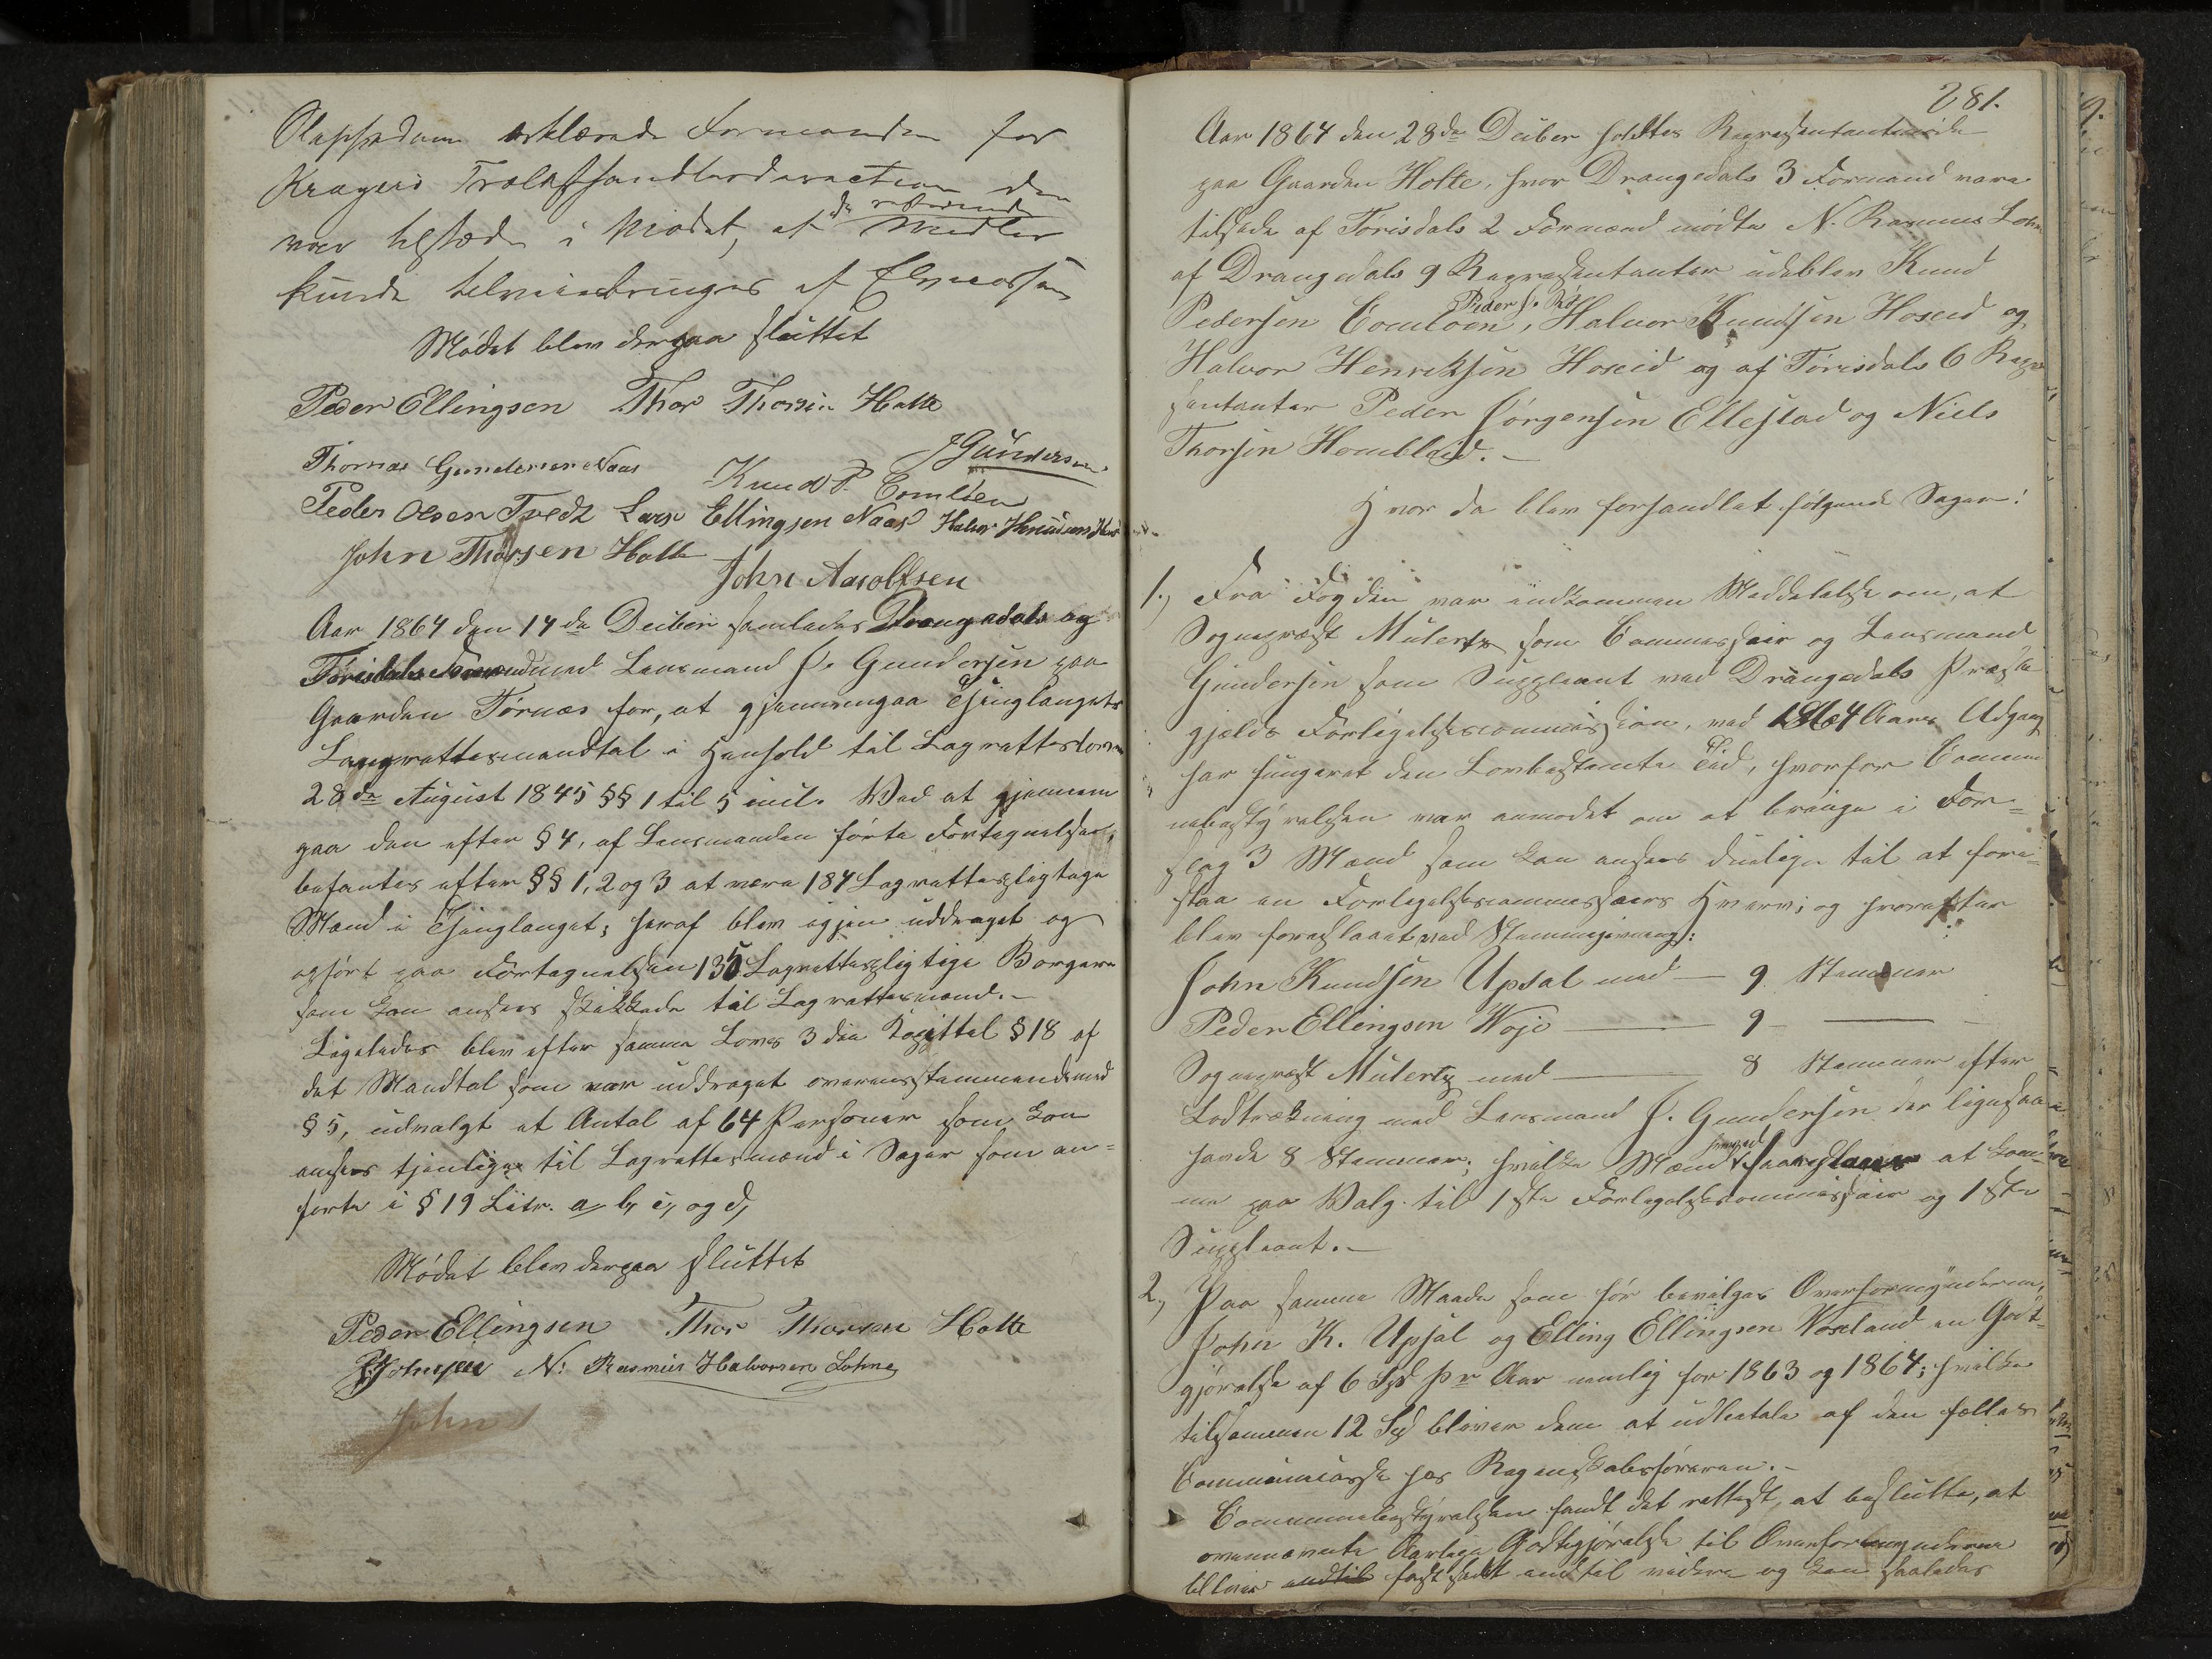 erklærede Formanden for
Kragerø den
var tilstæde i Mødet, at de Midler
kunde tilveiebringes af
Mødet blev derpaa sluttet
Peder Ellingsen Thor Thorsen Holte
JGundersen
Thomas Gundersen Naas Knud P. Comloen
Peder Olsen Tvedt Lars Ellingsen Naas Halvor
John Thorsen Holte
John Aasolfsen
Aar 1864 den 14de Decbr samledes Drangedals og
Tørisdals Formænd med Lensmand P. Gundersen paa
Gaarden Tørnæs for, at gjennemgaa Thinglaugets
Laugrettesmandtal i Henhold til Lagretteslovens
28de August 1845 §§ 1 til 5 incl. Ved at gjennem
gaa den efter § 4, af Lensmanden førte Fortegnelse,
befantes efter §§ 1, 2 og 3 at være 184 Lagrettespligtige
Mænd i Thinglauget; heraf blev igjen uddraget og
opført paa Fortegnelsen 135 Lagrettespligtige Borgere
som kan ansees skikkede til Lagrettesmænd.-
Ligeledes blev efter samme Lovs 3die Kapittel § 18 af
det Mandtal som var uddraget overensstemmende med
§ 5, udvalgt et Antal af 64 Personer som kan
ansees tjenlige til Lagrettesmænd i Sager som an=
førte i § 19 Litr. a, b, c, og d,
Mødet blev derpaa sluttet
Peder Ellingsen Thor Thorsen Holte
N: Rasmus Halvorsen Lohne
John
281.
Aar 1864 den 28de Decber holdtes Repræsentantmøde
paa Gaarden Holte, hvor Drangedals 3 Formænd vare
tilstede af Tørisdals 2 Formænd mødte N. Rasmus Lohne
af Drangedals 9 Repræsentanter udeblev Knud
Pedersen Comloen, Halvor Knudsen Hoseid og
Halvor Henriksen Hoseid og af Tørisdals 6 Repræ
sentanter Peder Jørgensen Ellestad og Niels
Thorsen Homblaid.-
Hvor da blev forhandlet følgende Sager:
1., Fra Fogden var indkommen Meddelelse om, at
Sognepræst Mülertz som Commissair og Lensmand
Gundersen som Suppleant ved Drangedals Præste
gjelds Forligelsescommission, ved 1864 Aars Udgang
har fungeret den Lovbestemte Tid, hvorfor Commu
nebestyrelsen var anmodet om at bringe i For=
slag 3 Mænd som kan ansees duelige til at fore=
staa en Forligelsescommissairs Hverv; og hvorefter
blev foreslaaet ved Stemmegivning:
John Knudsen Upsal med — 9 Stemmer
Peder Ellingsen Woje — 9 —
Sognepræst Mülertz med — 8 Stemmer efter
Lodtrækning med Lensmand P. Gundersen der ligesaa
havde 8 Stemmer; hvilke Mænd foreslaaes at kom=
me paa Valg til 1ste Forligelsescommissair og 1ste
Suppleant.-
2., Paa samme Maade som før bevilges Overformynderne,
John K. Upsal og Elling Ellingsen Voseland en Godt=
gjørelse af 6 Spd pr Aar nemlig for 1863 og 1864; hvilke
tilsammen 12 Spd bliver dem at udbetale af den fælles
Communecasse hos Regnskabsføreren.-
Communebestyrelsen fandt det rettest, at beslutte, at
ovennævnte Aarlige Godtgjørelse til Overformynderne
bliver fastsadt indtil videre og kan saaledes